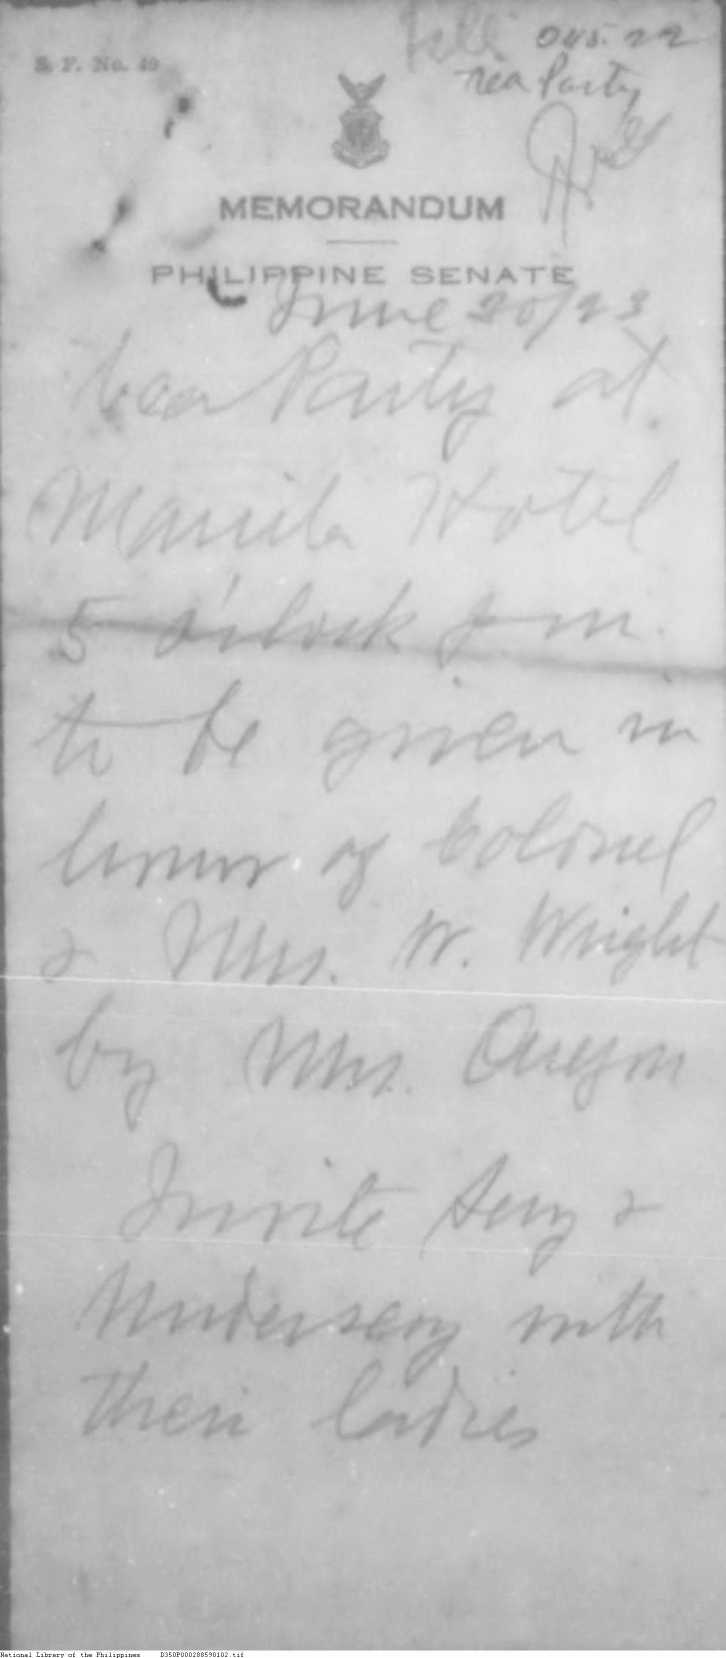 S. F. No. 49
Tea Party
MEMORANDUM
PHILIPPINE SENATE
June 20/23
Tea Party at
Manila Hotel
5 o'clock p m.
to be given in
honor of Colonel
& Mrs. W. Wright
by Mrs. Quezon
Invite Secy &
Undersecy with
their ladies
National Library of the Philippines D350P000288590102.tif